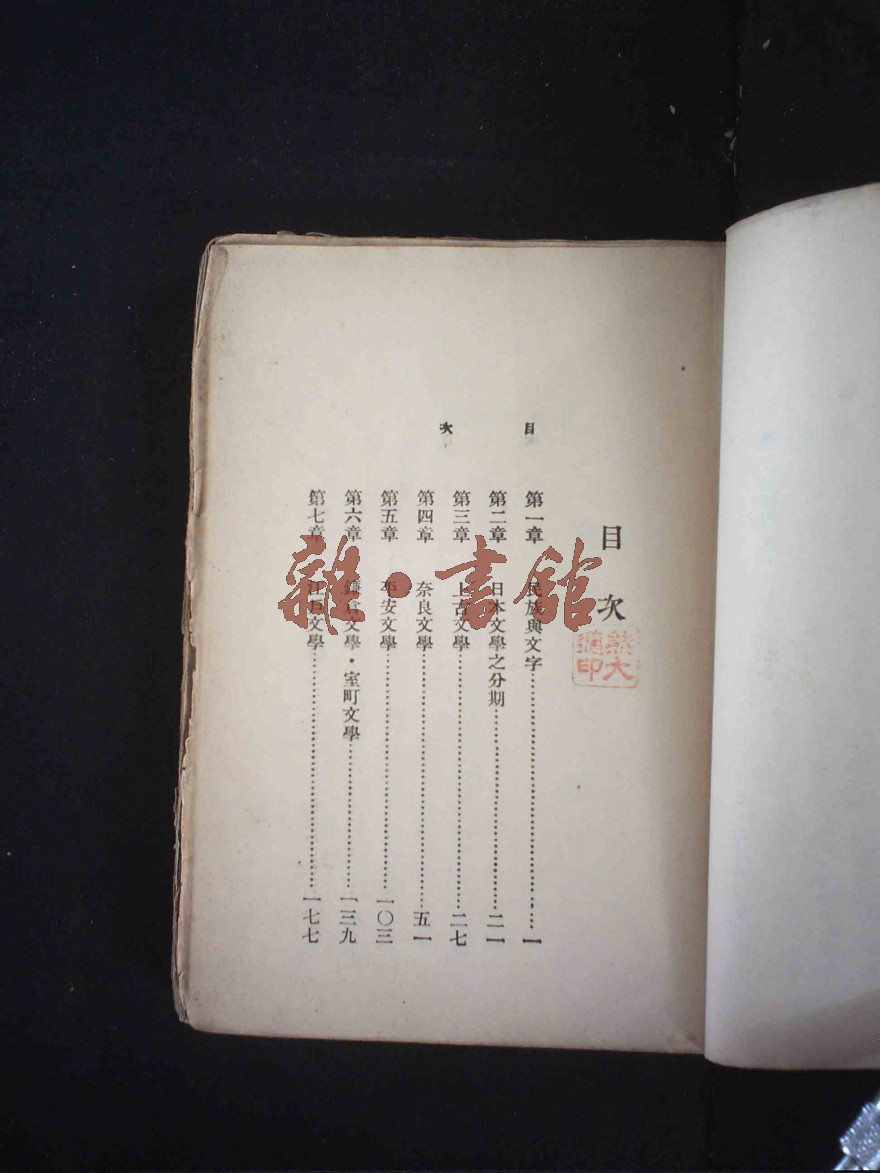 目次
目次
第一章 民族與文字……一
第二章 日本文學之分期……二一
第三章 上古文學……二七
第四章 奈良文學……五一
第五章 平安文學……一〇三
第六章 鎌倉文學・室町文學……一三九
第七章 江戶文學……一七七
雜・書館